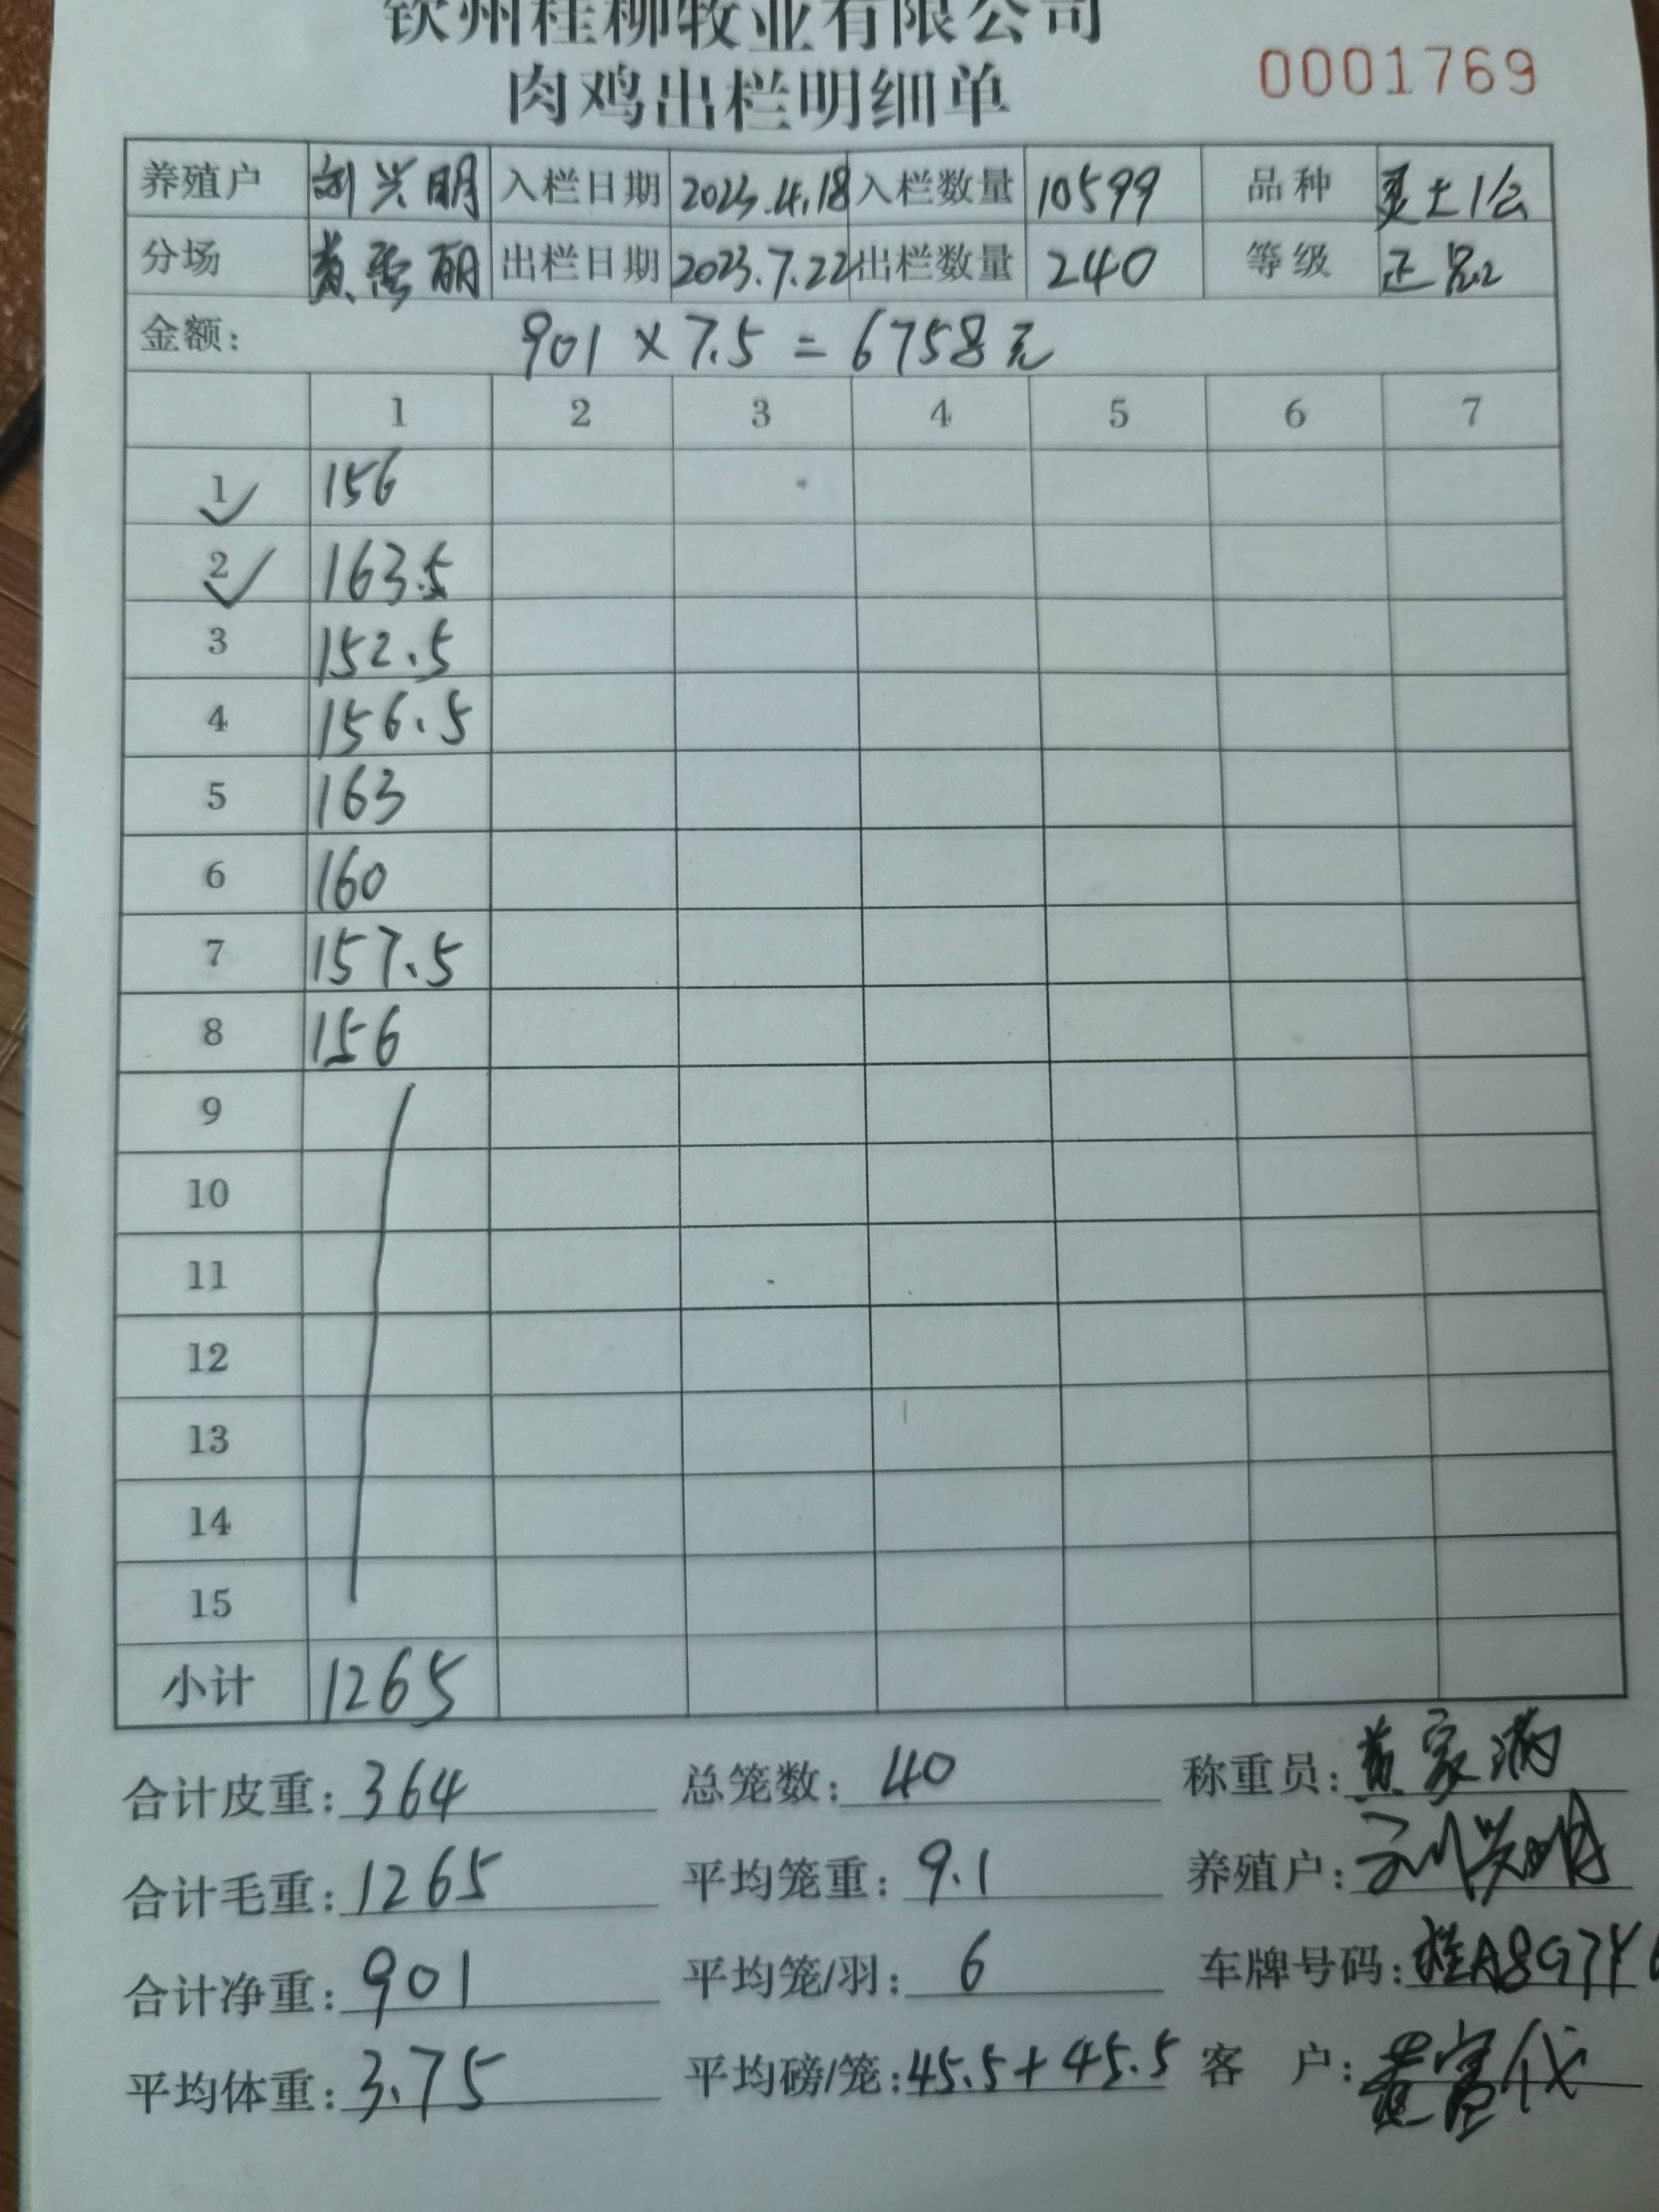 钦州桂柳牧业有限公司
肉鸡出栏明细单 0001769
养殖户 刘兴明 入栏日期 2023.4.18 入栏数量 10599 品种 灵土1公
分场 出栏日期 2023.7.22 出栏数量 240 等级 正品2
金额: 901×7.5=6758元
1 2 3 4 5 6 7
1 156
2 163.5
3 152.5
4 156.5
5 163
6 160
7 157.5
8 156
9
10
11
12
13
14
15
小计 1265
合计皮重: 364 总笼数: 40 称重员: 黄家满
合计毛重: 1265 平均笼重: 9.1 养殖户: 刘兴明
合计净重: 901 平均笼/羽: 6 车牌号码:
平均体重: 3.75 平均磅/笼: 45.5+45.5 客 户: